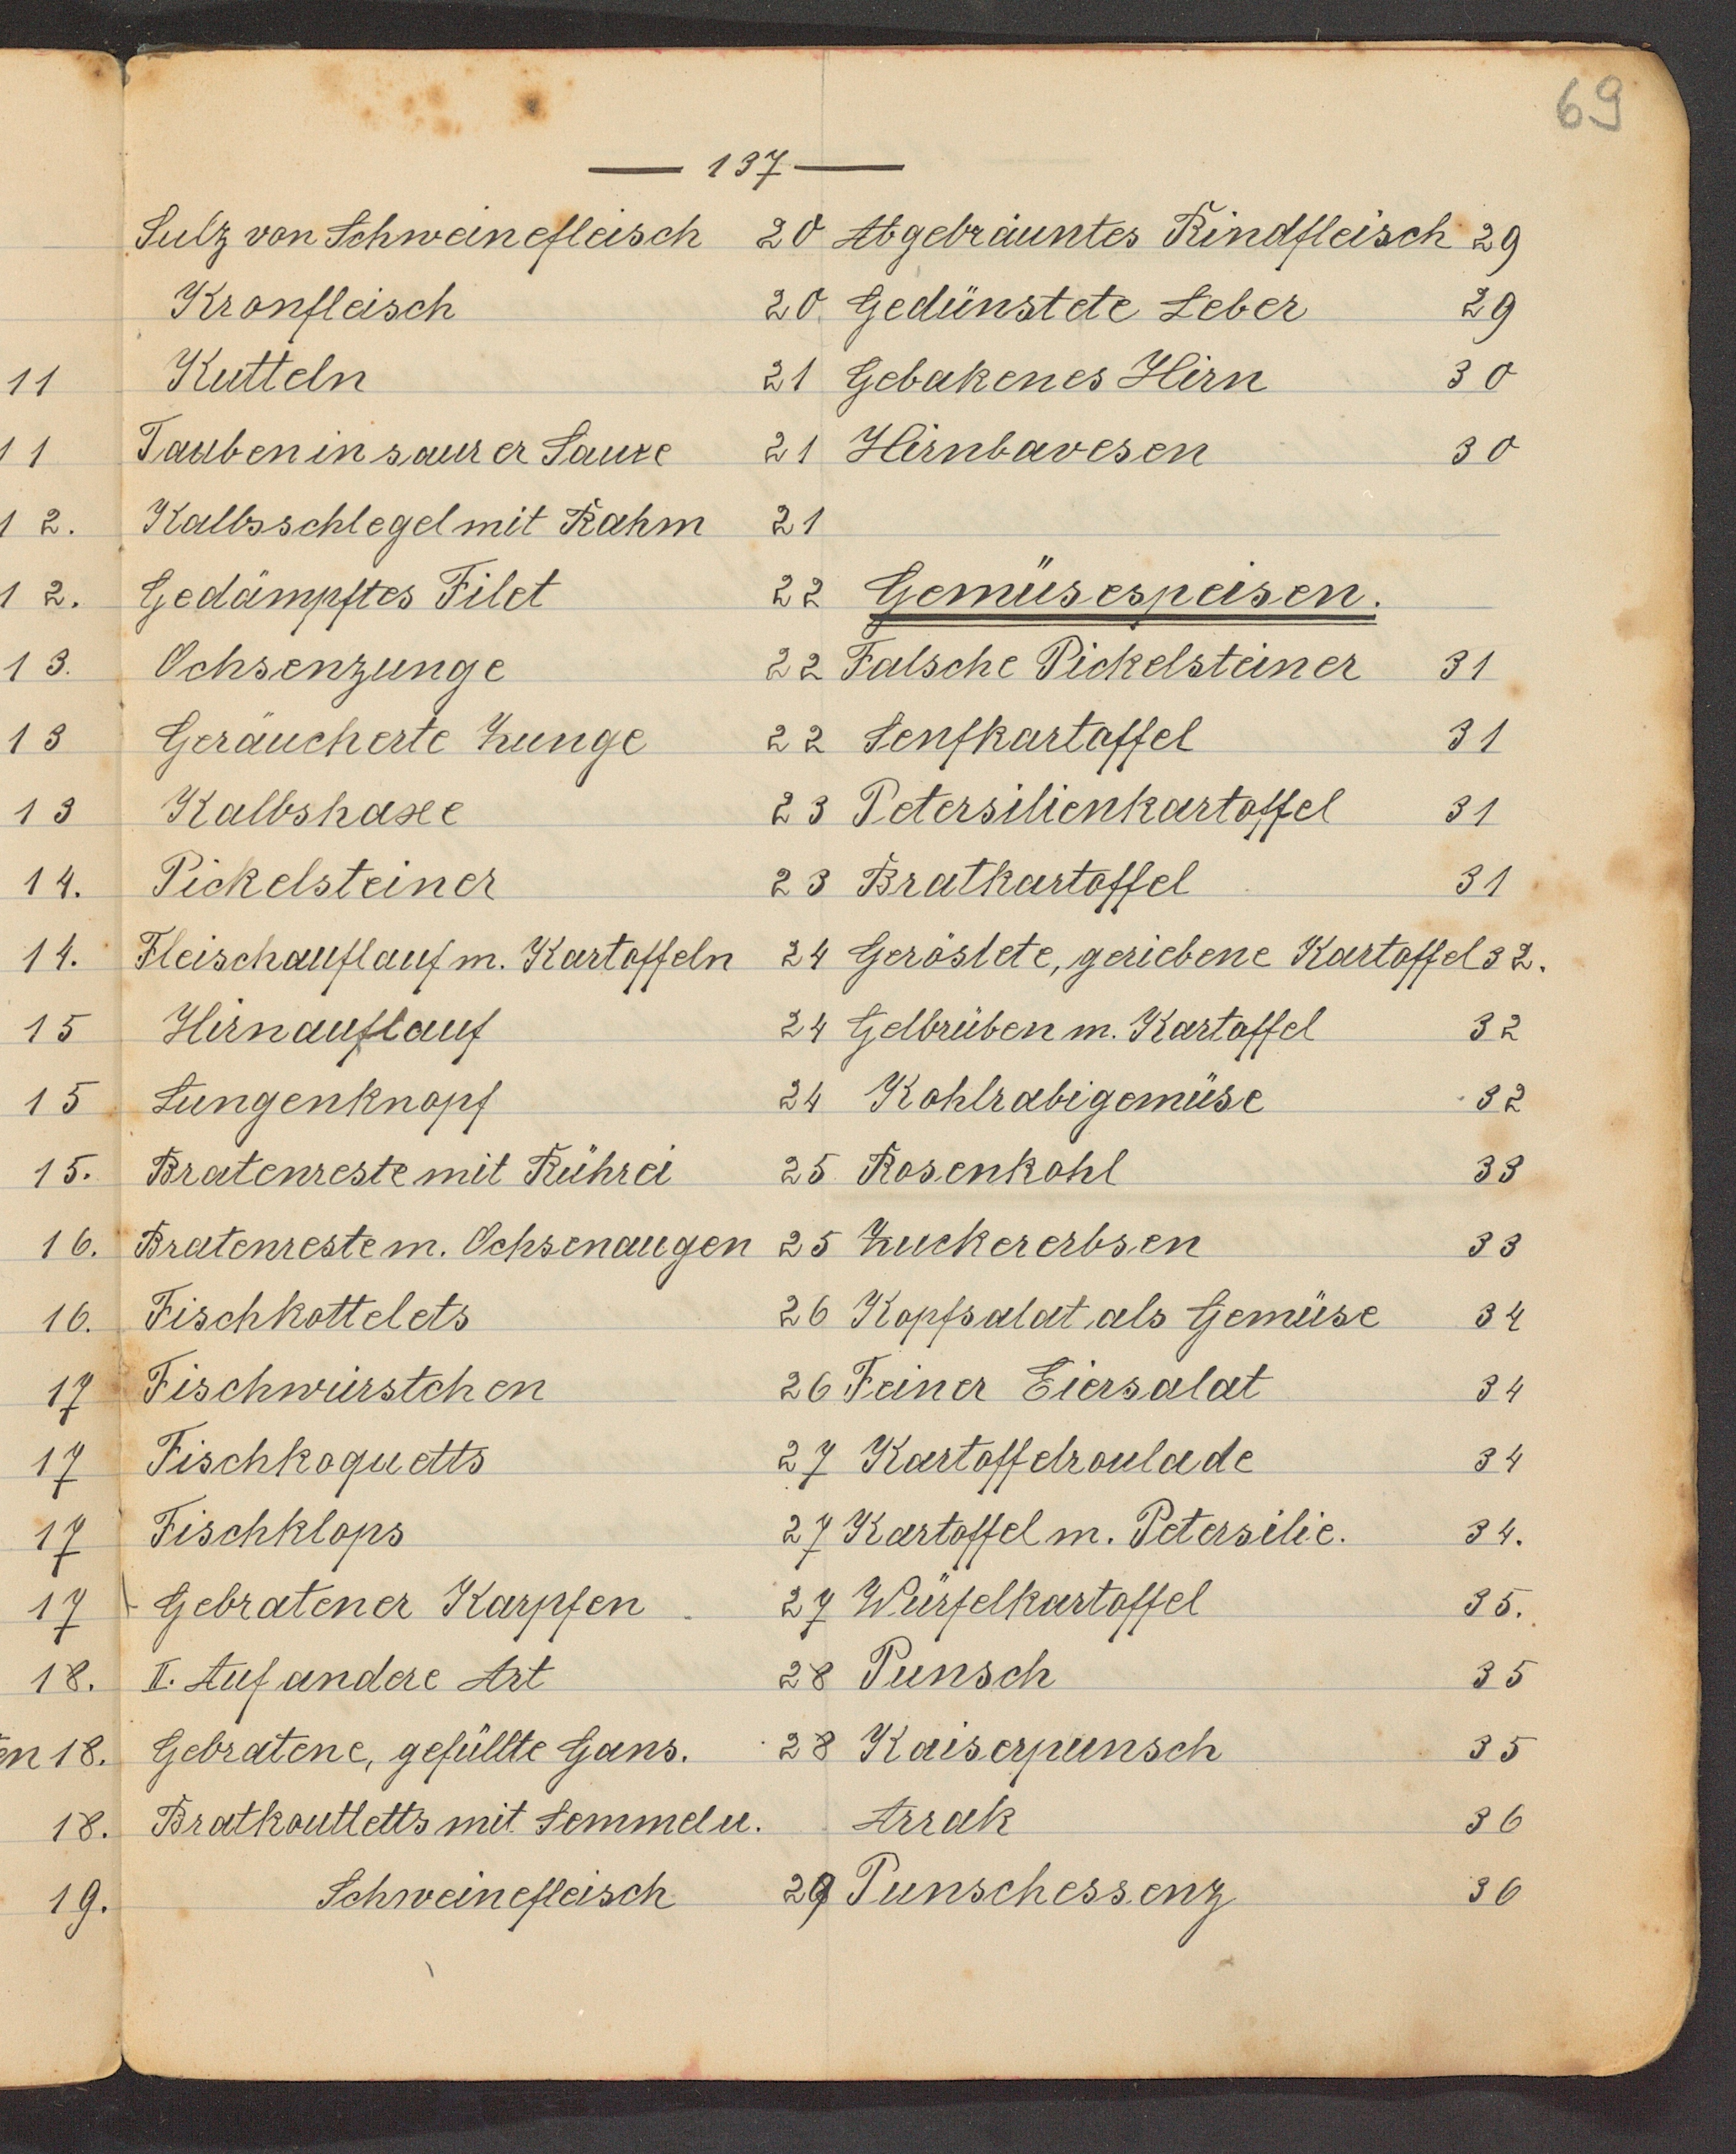 69
— 137 —
11
11
12.
12.
13.
13
13
14.
14.
15
15
15.
16.
16.
17
17
17
17
18.
en 18.
18.
19.
Sulz von Schweinefleisch 20
Kronfleisch 20
Kutteln 21
Tauben in saurer Sauce 21
Kalbsschlegel mit Rahm 21
Gedämpftes Filet 22
Ochsenzunge 22
Geräucherte Zunge 22
Kalbshaxe 23
Pickelsteiner 23
Fleischauflauf m. Kartoffeln 24
Hirnauflauf 24
Lungenknopf 24
Bratenreste mit Rührei 25
Bratenreste m. Ochsenaugen 25
Fischkottelets 26
Fischwürstchen 26
Fischkoquetts 27
Fischklops 27
Gebratener Karpfen 27
II. Auf andere Art 28
Gebratene, gefüllte Gans. 28
Bratkoutletts mit Semmel u.
Schweinefleisch 29
Abgebräuntes Rindfleisch 29
Gedünstete Leber 29
Gebakenes Hirn 30
Hirnbavesen 30
Gemüsespeisen.
Falsche Pickelsteiner 31
Senfkartoffel 31
Petersilienkartoffel 31
Bratkartoffel 31
Geröstete, geriebene Kartoffel 32.
Gelbrüben m. Kartoffel 32
Kohlrabigemüse 32
Rosenkohl 33
Zuckererbsen 33
Kopfsalat als Gemüse 34
Feiner Eiersalat 34
Kartoffelroulade 34
Kartoffel m. Petersilie. 34.
Würfelkartoffel 35.
Punsch 35
Kaiserpunsch 35
Arrak 36
Punschessenz 36